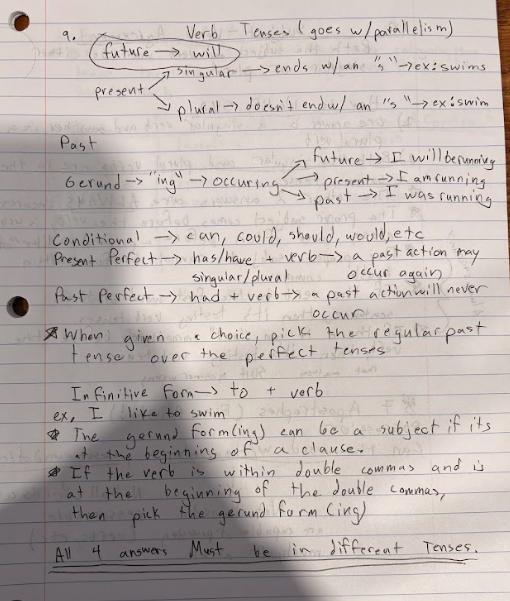 9. Verb - Tenses (goes w/parallelism)
future → will
present → singular → ends w/ an "s" → ex: swims
→ plural → doesn't end w/ an "s" → ex: swim
Past
Gerund → "ing" → occuring → future → I will be running
→ present → I am running
→ past → I was running
Conditional → can, could, should, would, etc
Present Perfect → has/have + verb → a past action may
singular/plural occur again
Past Perfect → had + verb → a past action will never
occur
☆ When given a choice, pick the regular past
tense over the perfect tenses
Infinitive Form → to + verb
ex, I like to swim
☆ The gerund form (ing) can be a subject if its
at the beginning of a clause.
☆ If the verb is within double commas and is
at the beginning of the double commas,
then pick the gerund form (ing)
All 4 answers Must be in different Tenses.